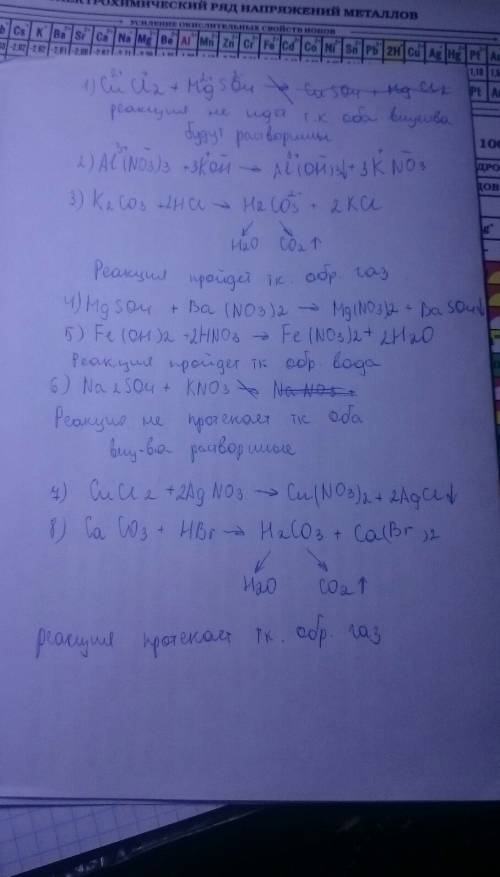 ЭЛЕКТРОХИМИЧЕСКИЙ РЯД НАПРЯЖЕНИЙ МЕТАЛЛОВ
УСИЛЕНИЕ ОКИСЛИТЕЛЬНЫХ СВОЙСТВ ИОНОВ
Cs K Ba Sr Ca Na Mg Be Al Mn Zn Cr Fe Cd Co Ni Sn Pb 2H Cu Ag Hg Pt Au
1) CuCl2 + MgSO4 CuSO4 + MgCl2
реакция не идет т.к оба вещ-ва
будут растворимы
2) Al(NO3)3 +3KOH → Al(OH)3↓ + 3KNO3
3) K2CO3 +2HCl → H2CO3 + 2KCl
H2O CO2↑
Реакция пройдет т.к. обр. газ
4) MgSO4 + Ba(NO3)2 → Mg(NO3)2 + BaSO4↓
5) Fe(OH)2 +2HNO3 → Fe(NO3)2 + 2H2O
Реакция пройдет тк обр. вода
6) Na2SO4 + KNO3 NaNO3 +
Реакция не протекает тк оба
вещ-ва растворимые
7) CuCl2 +2AgNO3 → Cu(NO3)2 + 2AgCl↓
8) CaCO3 + HBr → H2CO3 + Ca(Br)2
H2O CO2↑
реакция протекает тк. обр. газ